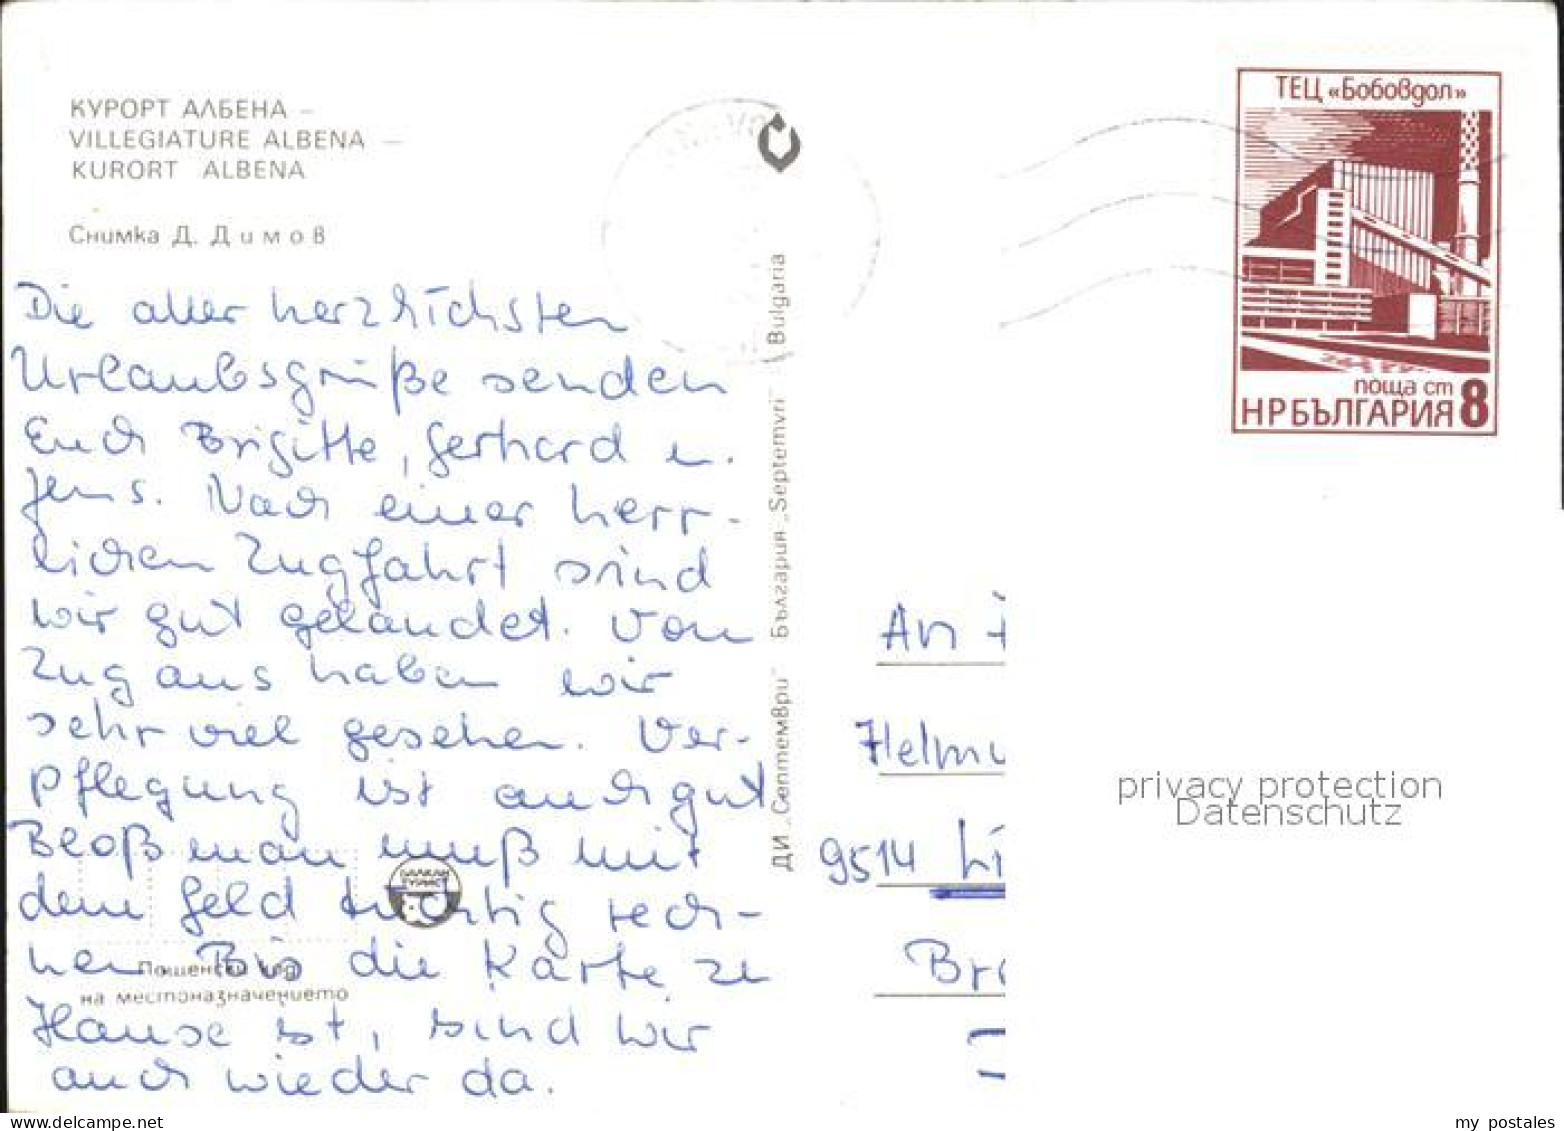 КУРОРТ АЛБЕНА –
VILLEGIATURE ALBENA –
KURORT ALBENA
Снимка Д. Димов
Die aller herzlichsten
Urlaubsgrüße senden
Euch Brigitte, Gerhard u.
Jens. Nach einer herr-
lichen Zugfahrt sind
wir gut gelandet. Von
Zug aus haben wir
sehr viel gesehen. Ver-
pflegung ist auch gut
Bloß man muß mit
dem Geld tüchtig rech-
nen Bis die Karte zu
Hause ist, sind wir
auch wieder da.
БАЛКАН
ТУРИСТ
Пощенски код
на местоназначението
ДИ „Септември" България „Septemvri" Bulgaria
ТЕЦ «Бобовдол»
поща ст 8
НРБЪЛГАРИЯ
An
Helmu
9514 Li
Br
privacy protection
Datenschutz
my postales